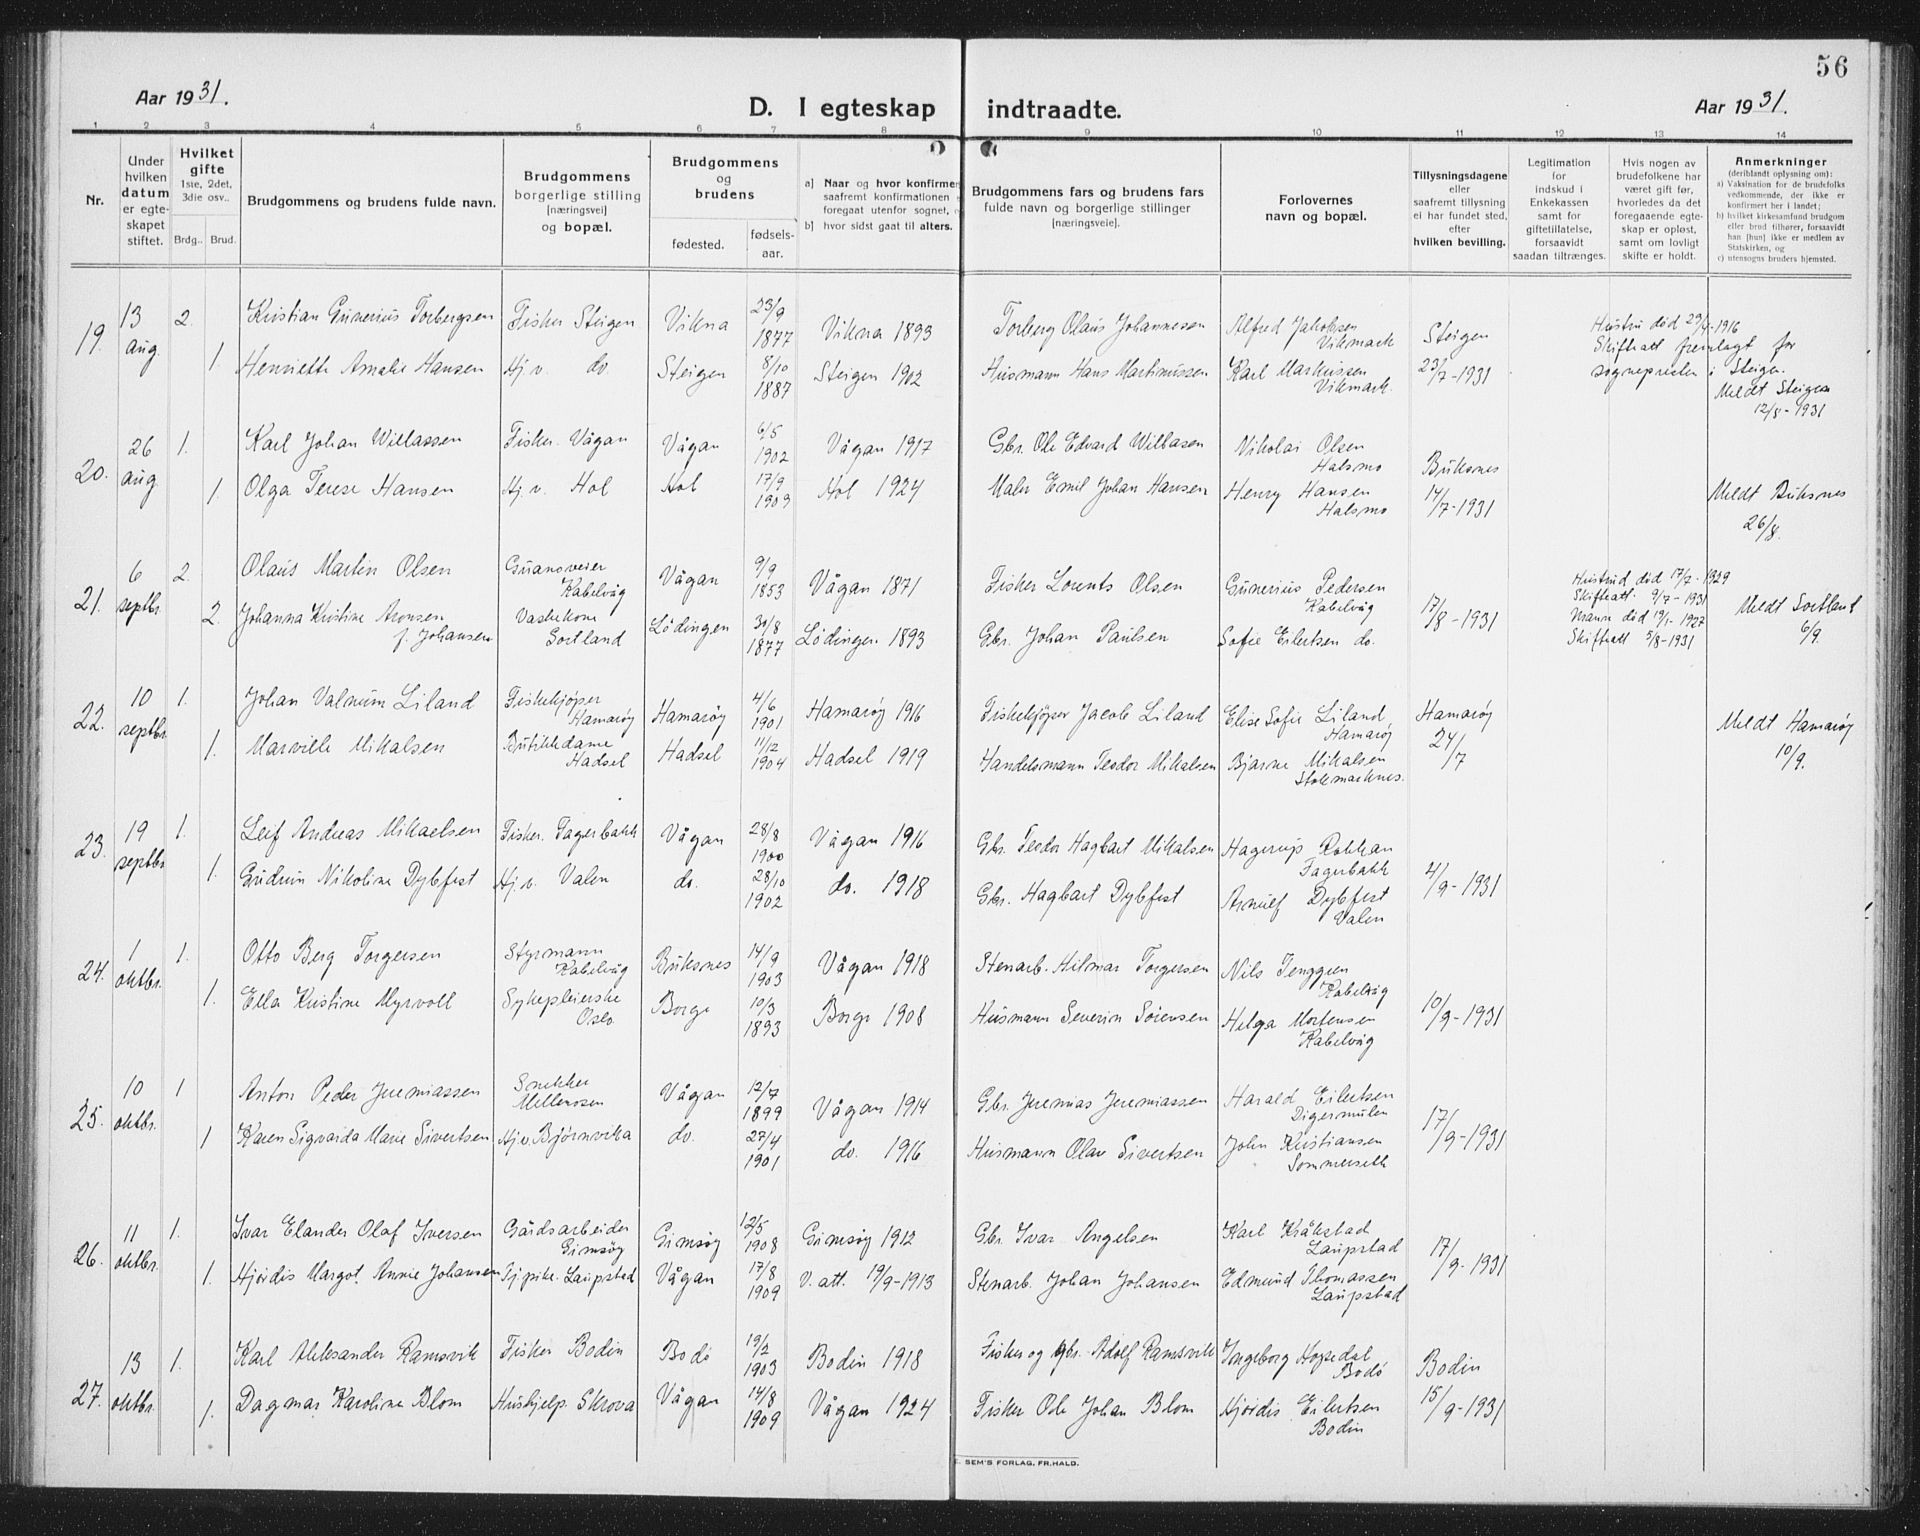 56
Aar 1931.
D. I egteskap indtraadte.
Aar 1931.
1 2 3 4 5 6 7 8 9 10 11 12 13 14
Nr.
Under hvilken datum er egteskapet stiftet.
Hvilket gifte 1ste, 2det, 3die osv..
Brdg.. Brud.
Brudgommens og brudens fulde navn.
Brudgommens borgerlige stilling [næringsvei] og bopæl.
Brudgommens og brudens
fødested.
fødsels-aar.
a) Naar og hvor konfirmer
saafremt konfirmationen
foregaat utenfor sognet,
b) hvor sidst gaat til alters.
Brudgommens fars og brudens fars
fulde navn og borgerlige stillinger
[næringsveie].
Forlovernes
navn og bopæl.
Tillysningsdagene
eller
saafremt tillysning
ei har fundet sted,
efter
hvilken bevilling.
Legitimation
for
indskud i
Enkekassen
samt for
giftetillatelse,
forsaavidt
saadan tiltrænges.
Hvis nogen av
brudefolkene har
været gift før,
hvorledes da det
foregaaende egte-
skap er opløst,
samt om lovligt
skifte er holdt.
Anmerkninger
(deriblandt oplysning om):
a) Vaksination for de brudefolks
vedkommende, der ikke er
konfirmert her i landet;
b) hvilket kirkesamfund brudgom
eller brud tilhører, forsaavidt
han [hun] ikke er medlem av
Statskirken, og
c) utensogns bruders hjemsted.
19. 13 aug. 2. Kristian Gunerius Torbergsen Fisker Steigen Vikna 23/9 1877 Vikna 1893 Torberg Olaus Johannesen Alfred Jakobsen Vikmark Steigen 23/7-1931 Hustru død 29/4-1916 Skifteatt fremlagt for sognepresten i Steigen.
1. Henriette Amalie Hansen Hj.v. do. Steigen 8/10 1887 Steigen 1902 Husmann Hans Martinussen Karl Markussen Vikmark. Meldt Steigen 12/8-1931
20. 26 aug 1. Karl Johan Willassen Fisker. Vågan Vågan 6/5 1902 Vågan 1917 Gbr. Ole Edvard Willasen Nikolai Olsen Halsmo Buksnes 14/7-1931
1. Olga Terese Hansen Hj.v. Hol Hol 17/9 1909 Hol 1924 Maler Emil Johan Hansen Henry Hansen Halsmo Meldt Buksnes 26/8.
21. 6 septbr. 2. Olaus Martin Olsen Guansveier Kabelvåg Vågan 9/9 1853 Vågan 1871 Fisker Lorents Olsen Gunerius Pedersen Kabelvåg 17/8-1931 Hustrud død 17/2-1929 Skifteatt. 9/7-1931
2. Johanna Kristine Aronsen f. Johansen Vaskekone Sortland Lödingen 30/8 1877 Lödingen 1893 Gbr. Johan Paulsen Sofie Eilertsen do. Mann død 19/1-1927 Skifteatt 5/8-1931 Meldt Sortland 6/9.
22. 10 septbr. 1. Johan Valnum Liland Fiskekjøper Hamarøy Hamarøy 4/6 1901 Hamarøy 1916 Fiskekjøper Jacob Liland Elise Sofie Liland, Hamarøy Hamarøy 24/7
1. Marville Mikalsen Butikkdame Hadsel Hadsel 11/12 1904 Hadsel 1919 Handelsmann Teodor Mikalsen Bjarne Mikalsen Stokmarknes. Meldt Hamarøy 10/9.
23. 19 septbr 1. Leif Andreas Mikaelsen Fisker. Fagerbakk Vågan 28/8 1900 Vågan 1916 Gbr. Teodor Hagbart Mikalsen Hagerup Rokkan Fagerbakk 4/9-1931
1. Gudrun Nikoline Dybfest Hj.v. Valen do. 28/10 1902 do. 1918 Gbr. Hagbart Dybfest Arnulf Dybfest Valen
24. 1 oktbr. 1. Otto Berg Torgersen Styrmann Kabelvåg Buksnes 14/9 1903 Vågan 1918 Stenarb. Hilmar Torgersen Nils Tenggren Kabelvåg 10/9-1931
1. Ella Kristine Myrvoll Sykepleierske Oslo Borge 10/3 1893 Borge 1908 Husmann Severin Sörensen Helga Mortensen Kabelvåg
25. 10 oktbr. 1 Anton Peder Jeremiassen Snekker Mellemosen Vågan 12/7 1899 Vågan 1914 Gbr. Jeremias Jeremiassen Harald Eilertsen Digermulen 17/9-1931
1 Karen Sigvarda Marie Sivertsen Hj.v. Bjørnvika do. 27/4 1901 do. 1916 Husmann Olav Sivertsen John Kristiansen Sommerseth
26. 11 oktbr. 1. Ivar Elander Olaf Iversen Gårdsarbeider Gimsøy Gimsøy 12/5 1908 Gimsøy 1912 Gbr. Ivar Angelsen Karl Kråkstad Laupstad 17/9-1931
1. Hjørdis Margot. Annie Johansen Tj.pike. Laupstad Vågan 17/8 1909 V. att. 19/9-1913 Stenarb. Johan Johansen Edmund Thomassen Laupstad
27. 13 oktbr. 1. Karl Aleksander Ramsvik Fisker Bodin Bodö 19/2 1903 Bodin 1918 Fisker og gbr. Adolf Ramsvik Ingeborg Hopedal Bodö Bodin 15/9-1931
1. Dagmar Karoline Blom Hushjelp. Skrova Vågan 14/8 1909 Vågan 1924 Fisker Ole Johan Blom Hjørdis Eilertsen Bodin
SEM'S FORLAG, FR.HALD.